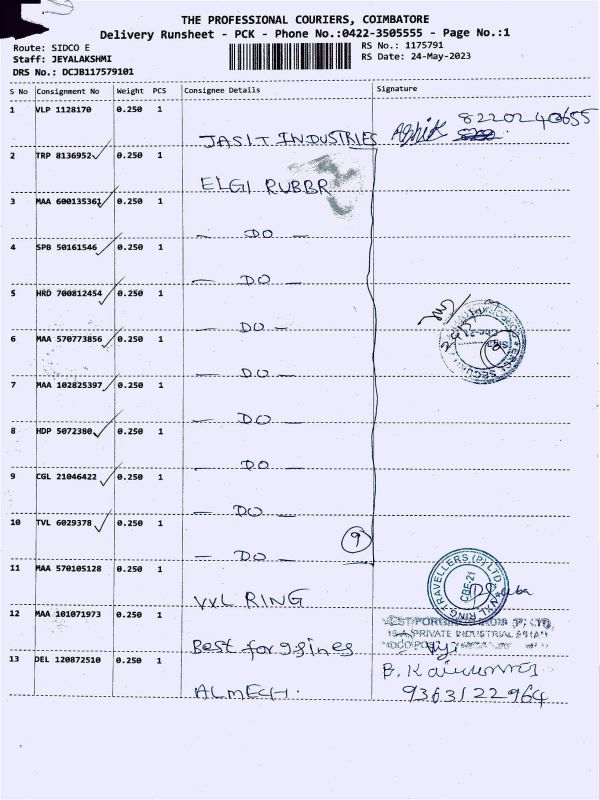 THE PROFESSIONAL COURIERS, COIMBATORE
Delivery Runsheet - PCK - Phone No.:0422-3505555 - Page No.:1
Route: SIDCO E
Staff: JEYALAKSHMI
DRS No.: DCJB117579101
RS No.: 1175791
RS Date: 24-May-2023
S No Consignment No Weight PCS Consignee Details Signature
1 VLP 1128170 0.250 1
JASIT INDUSTRIES 8220240655
2 TRP 8136952 0.250 1
ELGI RUBBR
3 MAA 600135361 0.250 1
— DO —
4 SPB 50161546 0.250 1
— DO —
5 HRD 700812454 0.250 1
— DO —
6 MAA 570773856 0.250 1
— DO —
7 MAA 102825397 0.250 1
— DO —
8 HDP 5072380 0.250 1
— DO —
9 CGL 21046422 0.250 1
— DO —
10 TVL 6029378 0.250 1
— DO — 9
11 MAA 570105128 0.250 1
VXL RING
12 MAA 101071973 0.250 1
Best forgsines
13 DEL 120872510 0.250 1
ALMECH.
9363122964